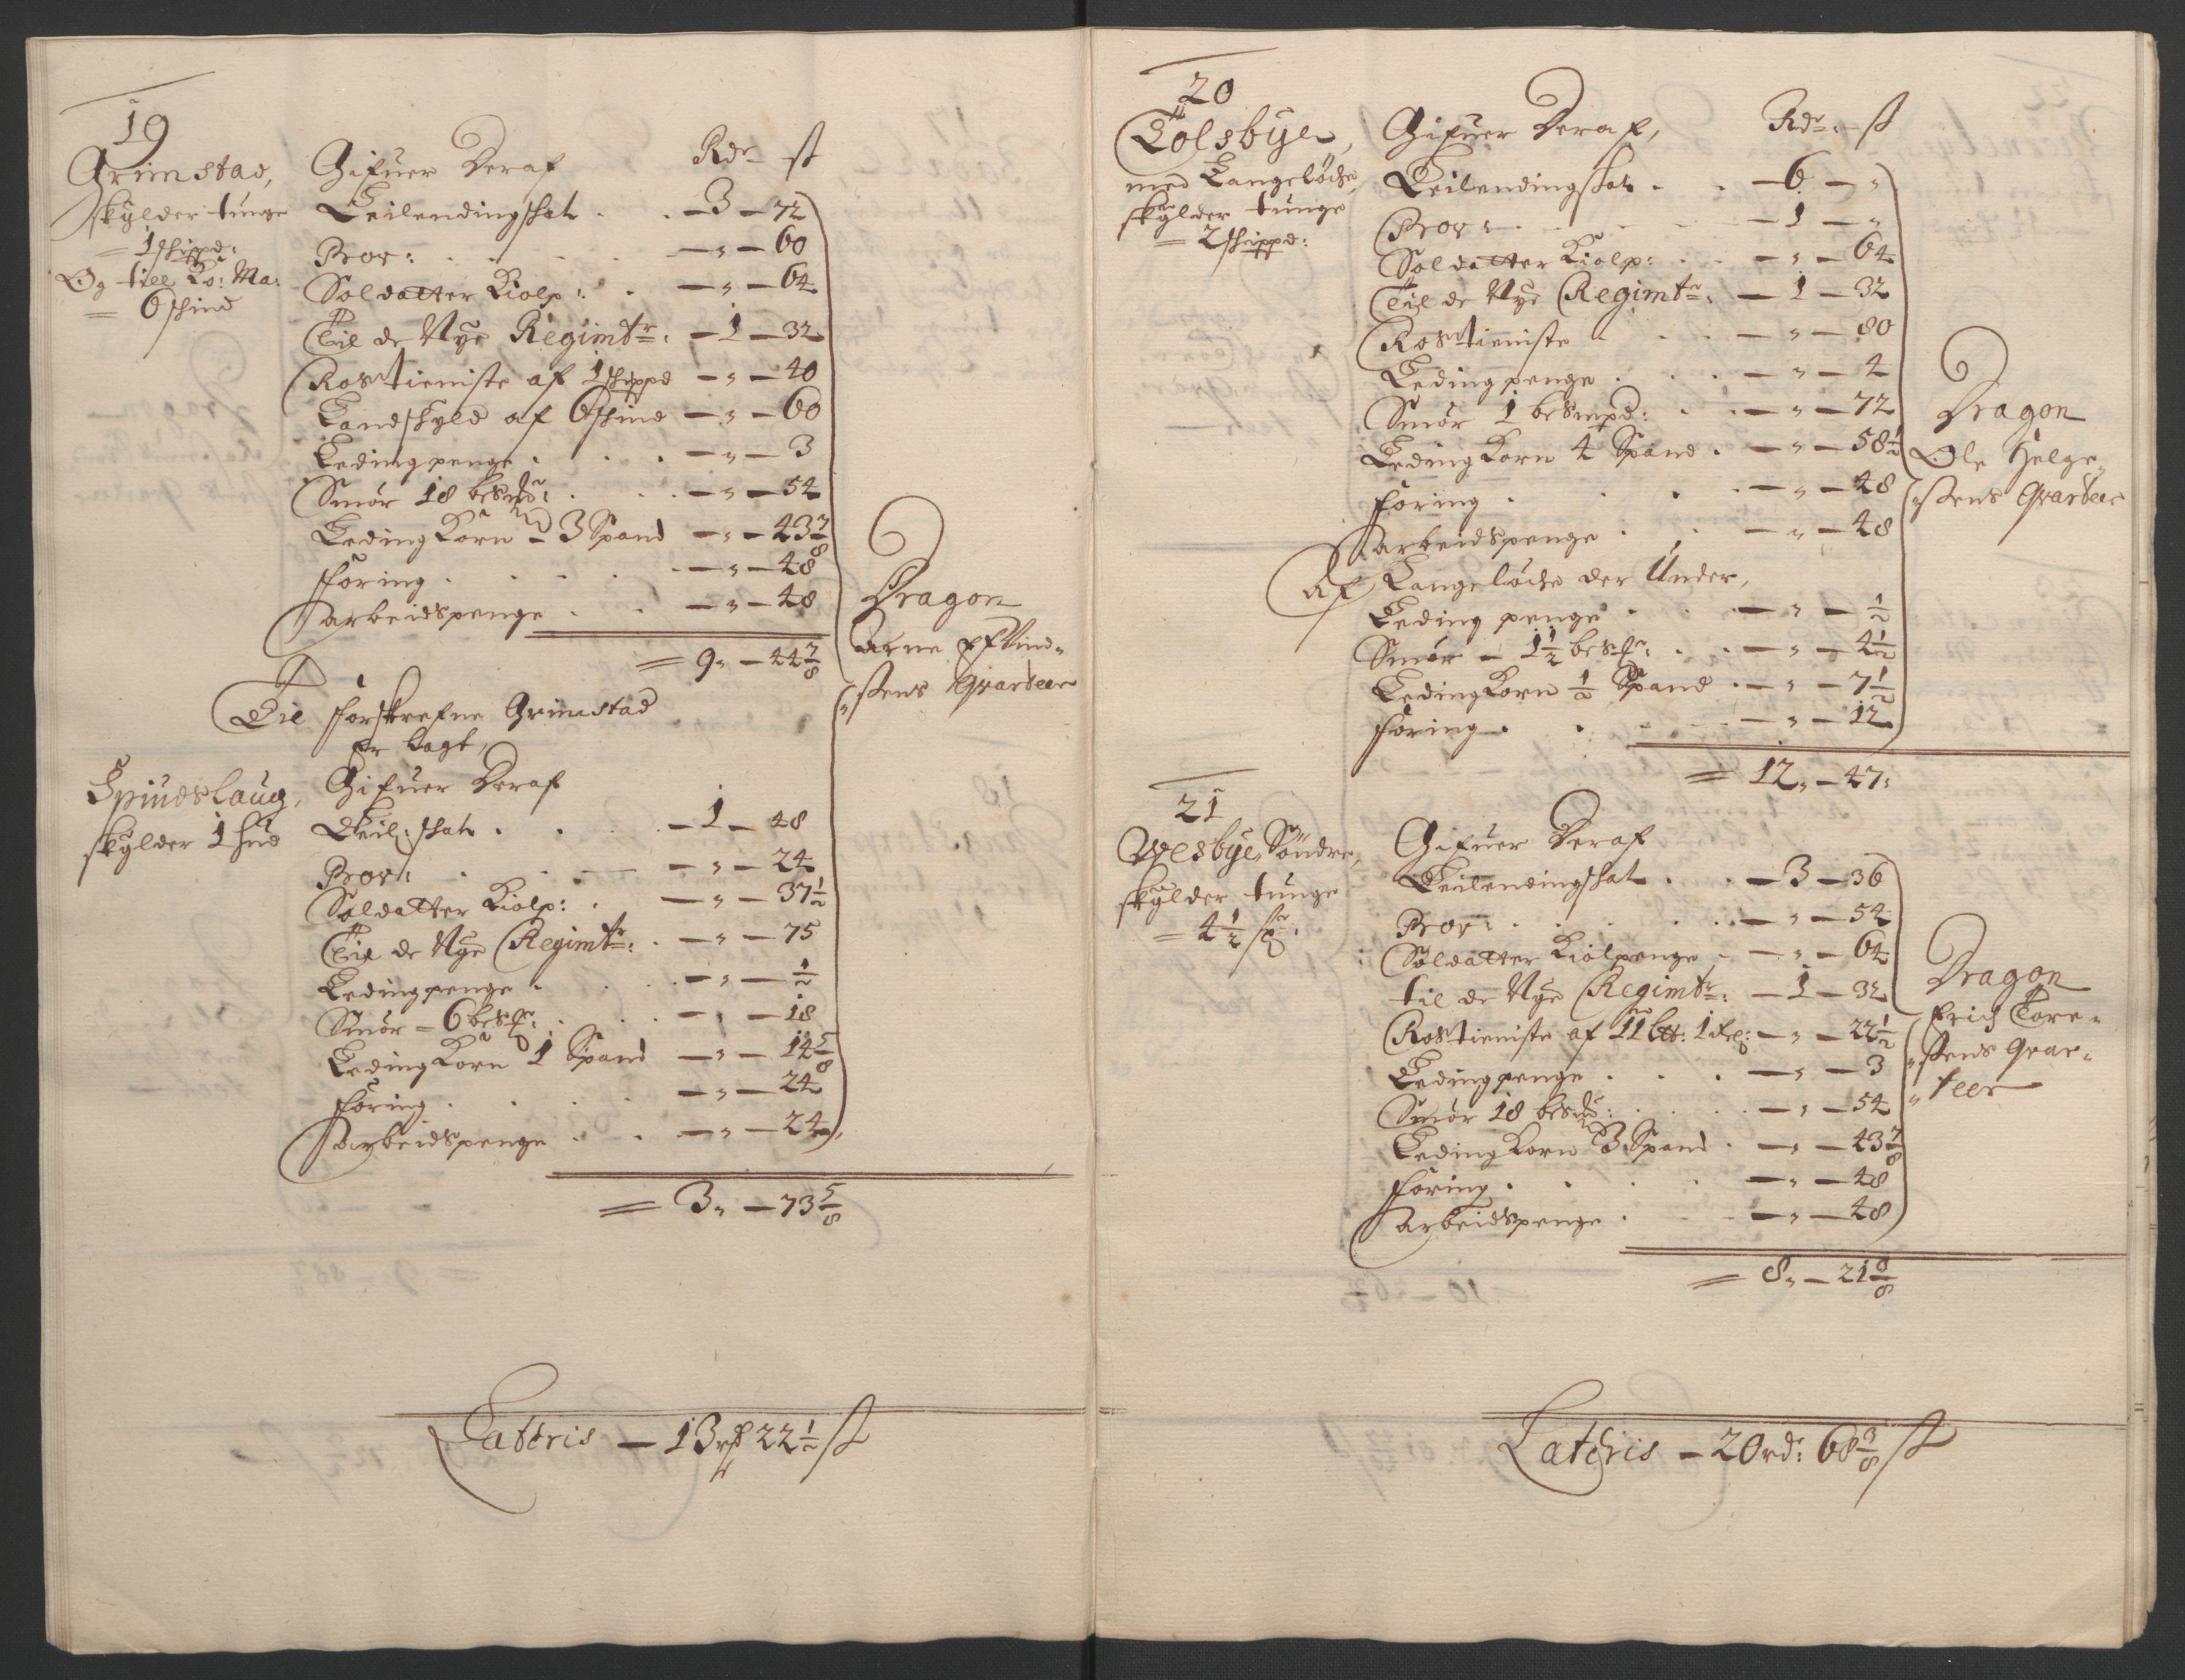 19
Grimstad,
skylder tunge
= 1 skippd:
Og till Ko: Ma:
= 6 skind
Gifuer Deraf Rdr – st
Leilendingshat . . – 3 – 72
Prov: . . . – „ – 60
Soldatter Kiolp: . – „ – 64
Til de Nye Regimtr: – 1 – 32
Rostieniste af 1 skippd – „ – 40
Landskyld af 6 skind – „ – 60
Ledingpenge . . . – „ – 3
Smør 18 besmr: . . – „ – 54
Leding Korn – 3 Spand – „ – 43 7/8
foring . . . . – „ – 48
arbeidspenge . . – „ – 48
= 9„ – 44 7/8
Dragon
Arne Efvind„
„sens Qvarteer
Til forskrefne Grimstad
er lagt,
Spiudslaug,
skylder 1 hud
Gifuer Deraf
Leil: skat . . . – 1 – 48
Prov: . . . – „ – 24
Soldatter Kiolp: . – „ – 37 1/2
Til de Nye Regimtr: . – „ – 75
Ledingpenge . . . – „ – 1/2
Smør – 6 besmr: . . – „ – 18
Leding Korn 1 Spand – „ – 14 5/8
foring . . . . – „ – 24
arbeidspenge . . – „ – 24
= 3„ – 73 5/8
Lateris – 13 rd 22 1/2 st
20
Tolsbye,
med Langeløche
skylder tunge
= 2 skippd:
Gifuer Deraf, Rdr: – st
Leilendingskat . . – 6 – „
Prov: . . . – 1 – „
Soldatter Kiolp: . . – „ – 64
Til de Nye Regimtr: – 1 – 32
Rostieniste . . . – „ – 80
Ledingpenge . . . – „ – 4
Smør 1 besmpd: . . – „ – 72
Leding Korn 4 Spand . – „ – 58 1/2
foring . . . – „ – 48
arbeidspenge . . – „ – 48
Af Langeløche der Under,
Leding penge . . . – „ – 1/2
Smør – 1 1/2 besmr: . . – „ – 4 1/2
Leding Korn 1/2 Spand . – „ – 7 1/2
foring . . . – „ – 12
= 12„ – 47:
Dragon
Ole Helge„
„sens Qvarteer
21
Wesbye, Søndre,
skylder tunge
= 4 1/2
Gifuer Deraf
Leilendingskat . . – 3 – 36
Prov: . . . . – „ – 54
Soldatter Kiolpenge . – „ – 64
til de Nye Regimtr: – 1 – 32
Rostieniste af 11 – „ – 22 1/2
Ledingpenge . . . – „ – 3
Smør 18 besmr: . . – „ – 54
Leding Korn 3 Spand . – „ – 43 7/8
foring . . . . – „ – 48
arbeidspenge . . – „ – 48
= 8„ – 21 3/8
Dragon
Erich Tore„
„sens Qvar„
„teer
Lateris – 20 rd: 68 3/8 st